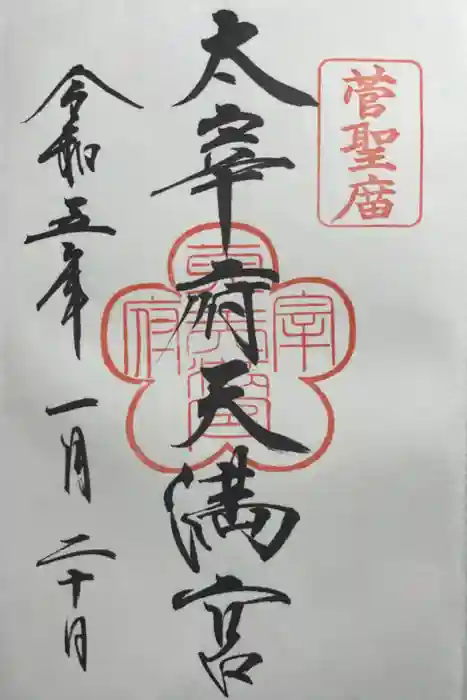 菅聖廟
太宰府天満宮
令和五年 一月 二十日